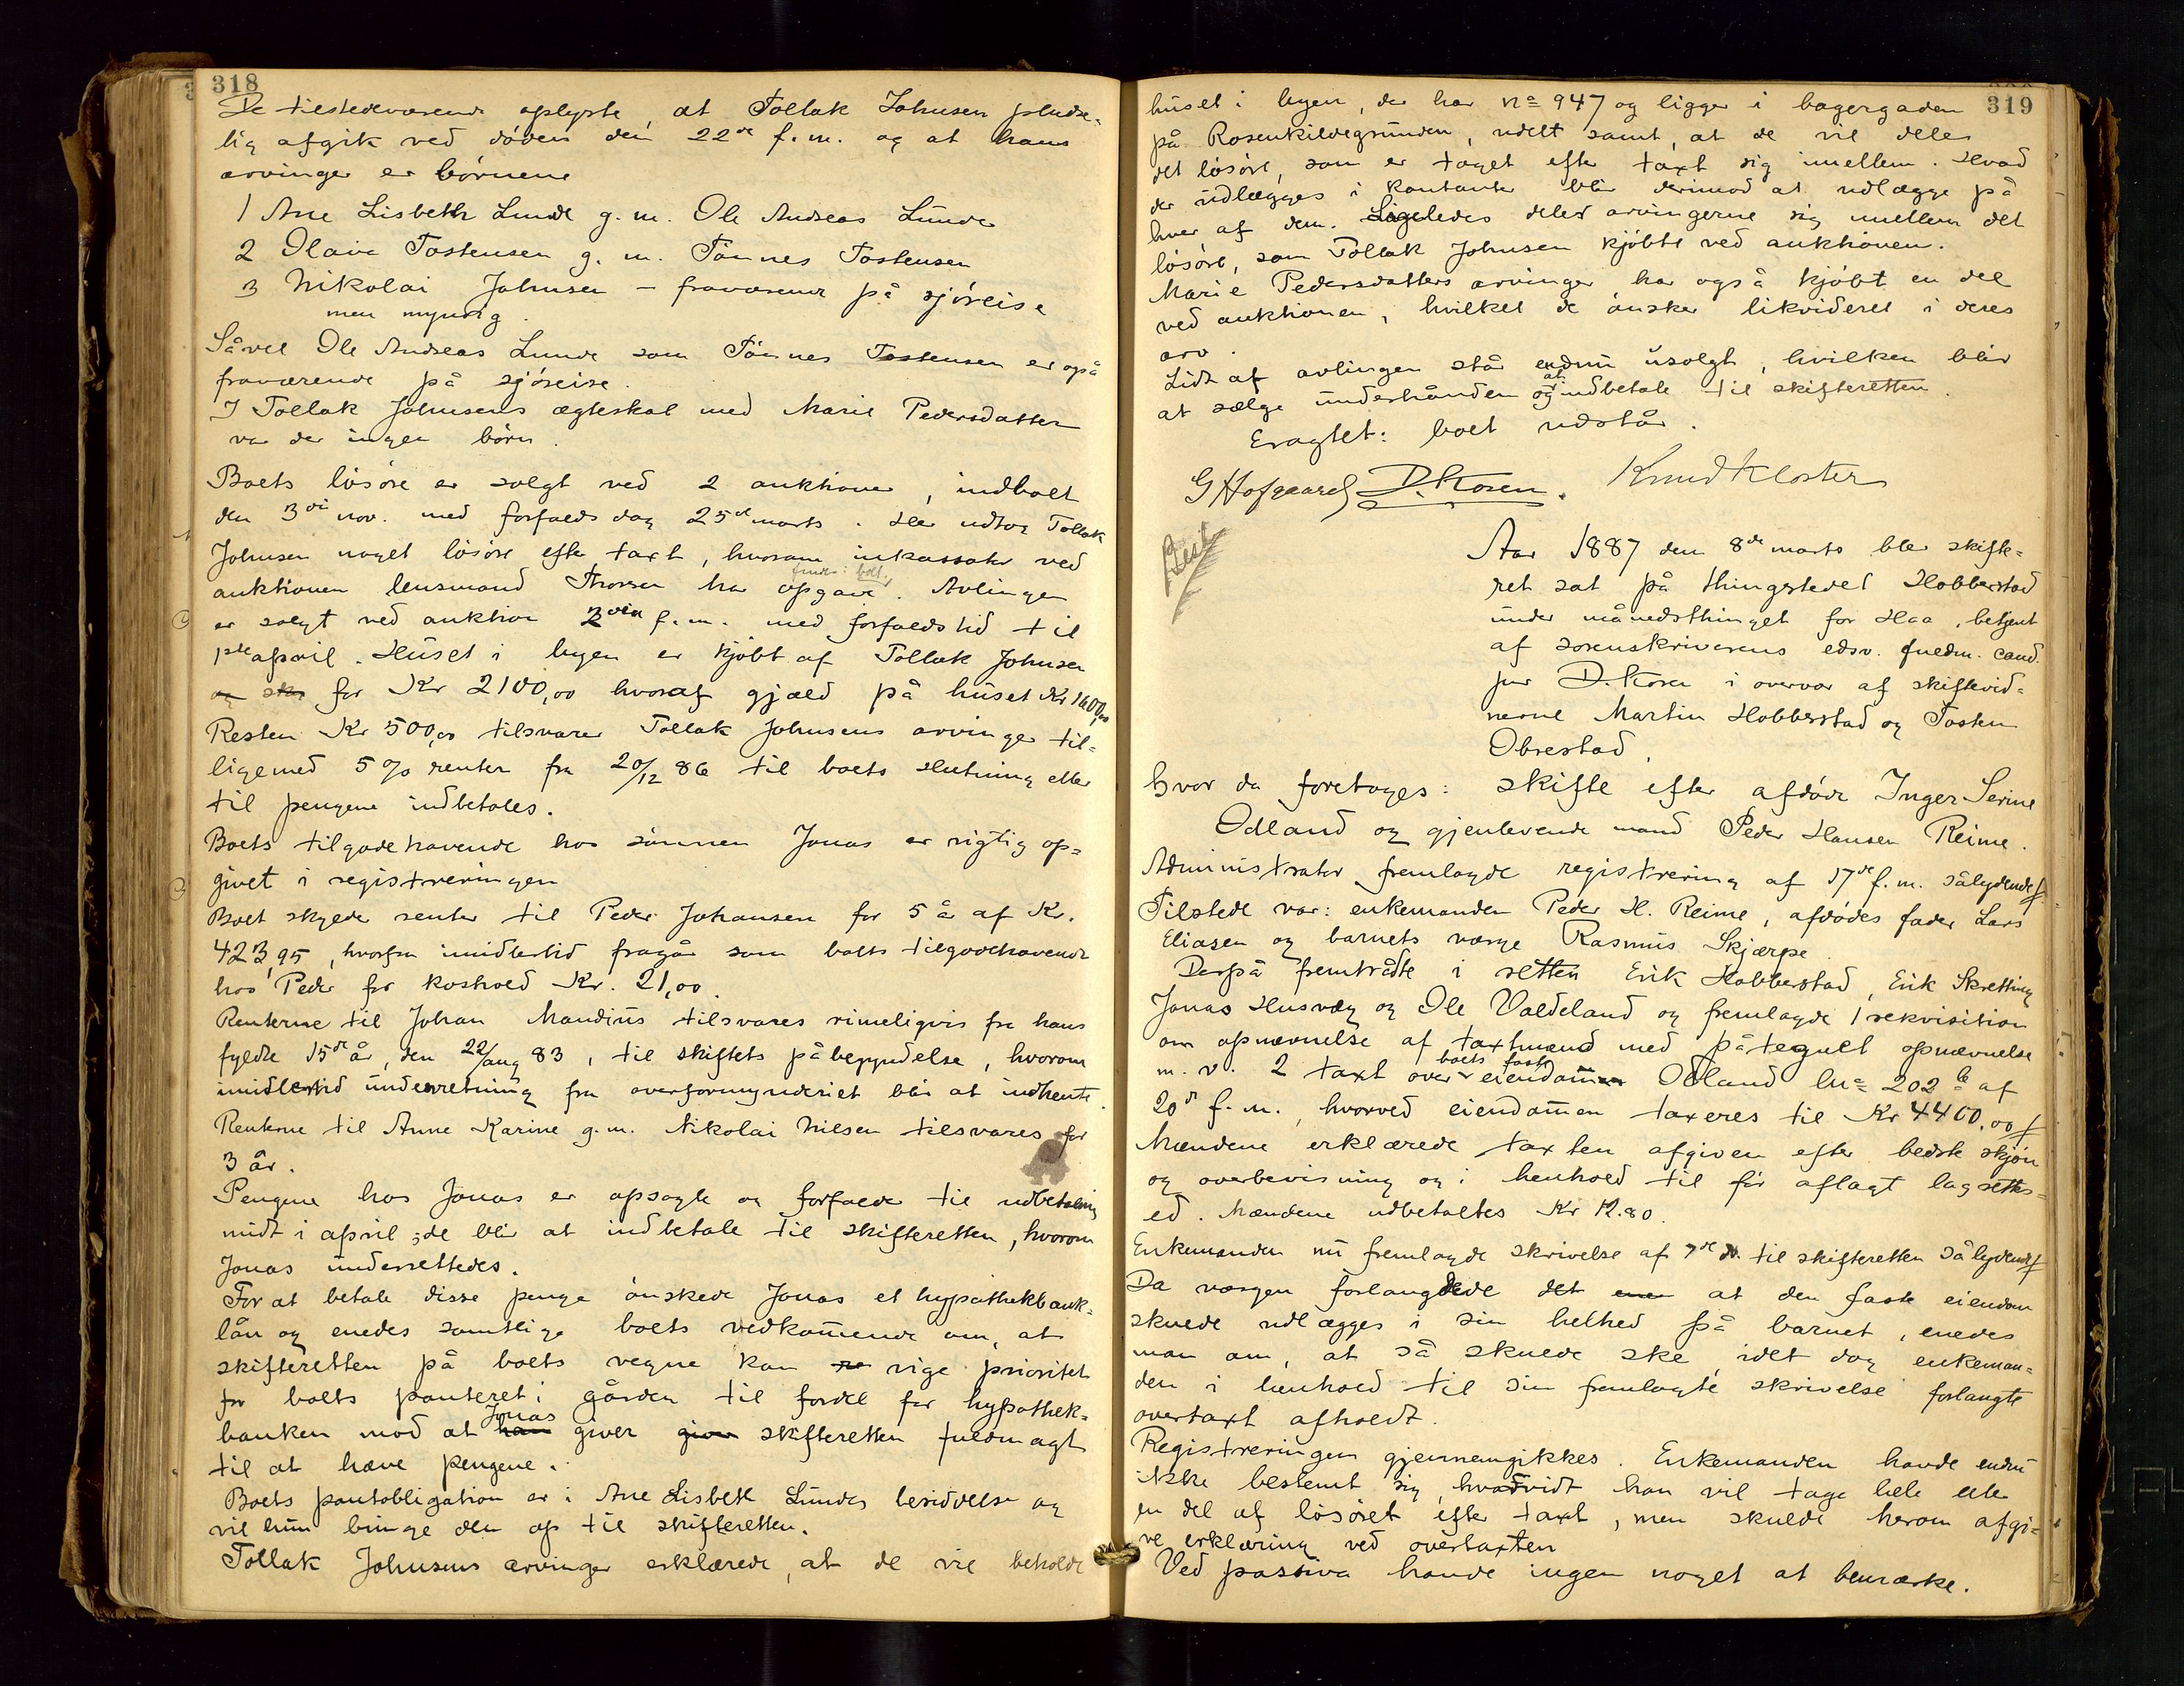 318
De tilstedeværende oplyste, at Tollak Johnsen pludse-
lig afgik ved døden den 22de f.m. og at hans
arvinger er børnene
1 Ane Lisbeth Lunde g.m. Ole Andreas Lunde
2 Olava Tostensen g.m. Tønnes Tostensen
3 Nikolai Johnsen – fraværende på sjøreise
men myndig.
Såvel Ole Andreas Lunde som Tønnes Tostensen er også
fraværende på sjøreise.
I Tollak Johnsens ægteskab med Marie Pedersdatter
var der ingen børn.
Boets løsøre er solgt ved 2 auktioner, indboet
den 3die nov. med forfaldsdag 25de marts. Her udtog Tollak
Johnsen noget løsøre efter taxt, hvorom inkassator ved
findes i boet
auktionen lensmand Thorsen har opgave. Avlingen
er solgt ved auktion f.m. med forfaldstid til
1ste april. Huset i byen er kjøbt af Tollak Johnsen
for Kr 2100,00 hvoraf gjæld på huset Kr 1600,00
Resten Kr 500,00 tilsvarer Tollak Johnsens arvinger til-
ligemed 5% renter fra 20/12 86 til boets slutning eller
til pengene indbetales.
Boets tilgodehavende hos sønnen Jonas er rigtig op-
givet i registreringen
Boet skylder renter til Peder Johansen for 5 år af Kr.
423,95, hvorfra imidlertid fragår som boets tilgodehavende
hos Peder for kosthold Kr. 21,00.
Renterne til Johan Mandius tilsvares rimeligvis fra hans
fyldte 15de år, den 22/aug 83, til skiftets påbegyndelse, hvorom
imidlertid underretning fra overformynderiet blir at indhente.
Renterne til Anne Karine g.m. Nikolai Nilsen tilsvares for
3 år.
Pengene hos Jonas er opsagte og forfalder til udbetaling
midt i april; de blir at indbetale til skifteretten, hvorom
Jonas underrettedes.
For at betale disse penge ønskede Jonas et hypothekbank-
lån og enedes samtlige boets vedkommende om, at
skifteretten på boets vegne kan vige prioritet
for boets panteret i gården til fordel for hypothek-
Jonas
banken mod at han giver giver skifteretten fuldmagt
til at hæve pengene.
Boets pantobligation er i Ane Lisbeth Lundes besiddelse og
vil hun bringe den op til skifteretten.
Tollak Johnsens arvinger erklærede, at de vil beholde
319
huset i byen, der har no 947 og ligger i bagergaden
på Rosenkildegrunden, udelt samt, at de vil dele
det løsøre, som er taget efter taxt sig imellem. Hvad
der udlægges i kontanter blir derimod at udlægge på
hver af dem. Ligeledes deler arvingerne sig imellem det
løsøre, som Tollak Johnsen kjøbte ved auktionen.
Marie Pedersdatters arvinger har også kjøbt en del
ved auktionen, hvilket de ønsker likvideret i deres
arv.
Lidt af avlingen står endnu usolgt, hvilken blir
at
at sælge underhånden og indbetale til skifteretten.
Eragtet: boet udstår.
G Hofgaard D. Koren. Knud Kloster
Aar 1887 den 8de marts blev skifte-
ret sat på thingstedet Hobberstad
under månedsthinget for Haa, betjent
af sorenskriverens edsv. fuldm. cand.
jur D. Koren i overvær af skiftevid-
nerne Martin Hobberstad og Tosten
Obrestad,
hvor da foretoges: skifte efter afdøde Inger Serine
Odland og gjenlevende mand Peder Hansen Reime.
Administrator fremlagde registrering af 17de f.m. sålydende
Tilstede var: enkemanden Peder H. Reime, afdødes fader Lars
Eliasen og barnets værge Rasmus Skjærpe.
Derpå fremtrådte i retten Erik Hobberstad, Erik Skretting
Jonas Husvæg og Ole Voldeland og fremlagde 1 rekvisition
om opnævnelse af taxtmænd med påtegnet opnævnelse
boets faste
m.v. 2 taxt over eiendommen Odland lno 202 af
20de f.m., hvorved eiendommen taxeres til Kr 4400,00
Mændene erklærede taxten afgiven efter bedste skjøn
og overbevisning og i henhold til før aflagt lagrettes-
ed. Mændene udbetaltes Kr 12.80.
Enkemanden nu fremlagde skrivelse af 7de ds. til skifteretten sålydende
Da værgen forlangede det at den faste eiendom
skulde udlægges i sin helhed på barnet, enedes
man om, at så skulde ske, idet dog enkeman-
den i henhold til sin fremlagte skrivelse forlangte
overtaxt afholdt.
Registreringen gjennemgikkes. Enkemanden havde endnu
ikke bestemt sig, hvorvidt han vil tage hele eller
en del af løsøret efter taxt, men skulde herom afgi-
ve erklæring ved overtaxten
Ved passiva havde ingen noget at bemærke.